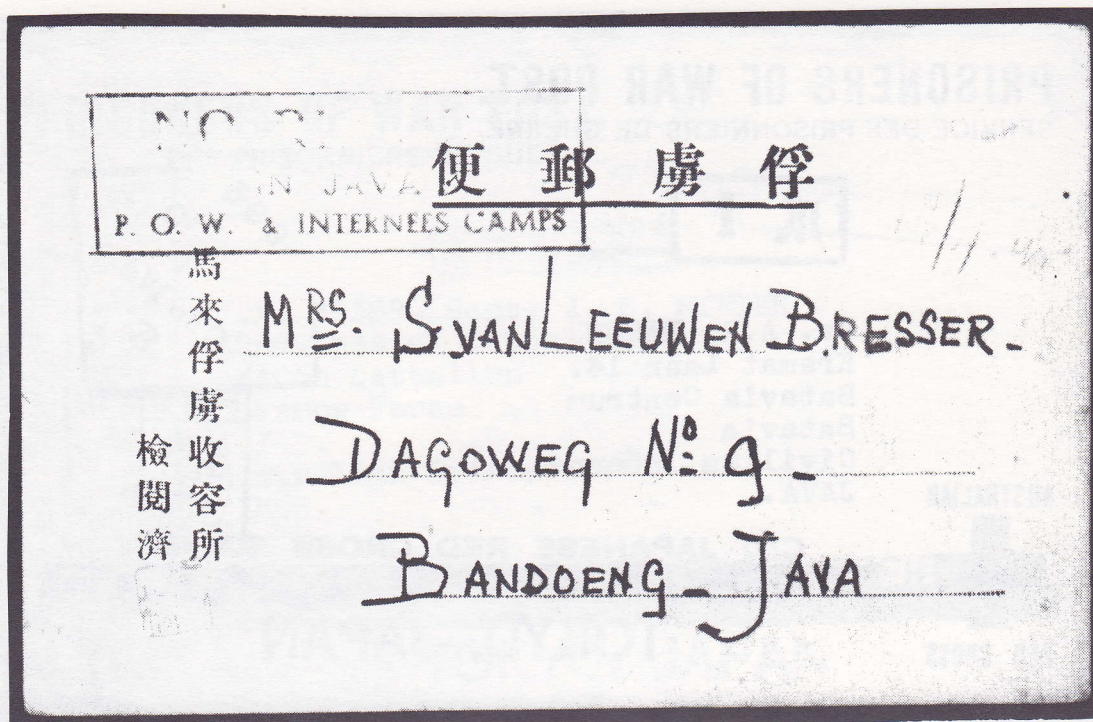 NO
IN JAVA
P. O. W. & INTERNEES CAMPS
俘虜郵便
馬來俘虜收容所
檢閱濟
MRS. S. VAN LEEUWEN B.RESSER.
DAGOWEG No 9.
BANDOENG - JAVA